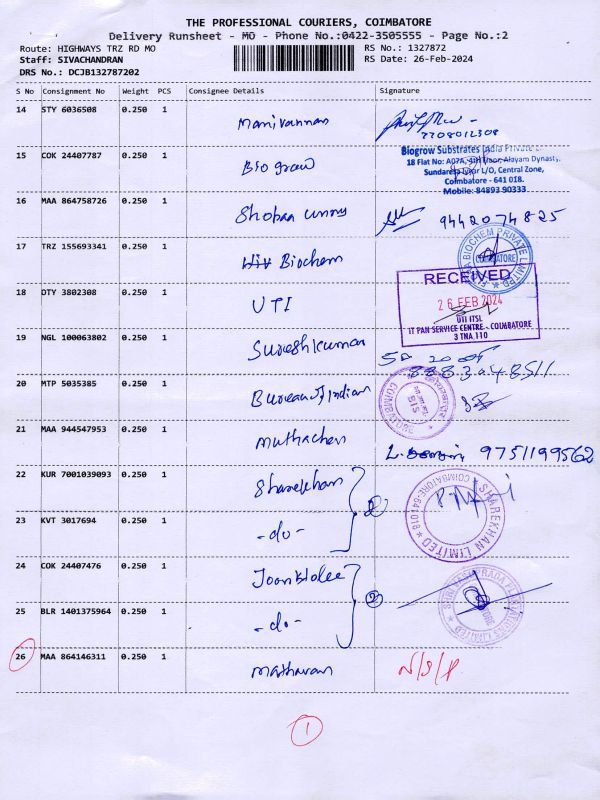 THE PROFESSIONAL COURIERS, COIMBATORE
Delivery Runsheet - MO - Phone No.:0422-3505555 - Page No.:2
Route: HIGHWAYS TRZ RD MO
RS No.: 1327872
Staff: SIVACHANDRAN
RS Date: 26-Feb-2024
DRS No.: DCJB132787202
S No Consignment No Weight PCS Consignee Details Signature
14 STY 6036508 0.250 1 Manivannan
7708012308
15 COK 24407787 0.250 1 Bio grow
Biogrow Substrates India Private
18 Flat No: A07A, 4th Floor, Alayam Dynasty,
Sundaresa Iyer L/O, Central Zone,
Coimbatore - 641 018.
Mobile: 84893 90333
16 MAA 864758726 0.250 1 Shobaa unny 9442074825
17 TRZ 155693341 0.250 1 Biochem
BIOCHEM PRIVATE LIMITED
COIMBATORE
18 DTY 3802308 0.250 1 UTI
RECEIVED
26 FEB 2024
UTI ITSL
IT PAN SERVICE CENTRE - COIMBATORE
3 TNA 110
19 NGL 100063802 0.250 1 Sureshkumar
20 MTP 5035385 0.250 1 Bureau of Indian
COIMBATORE
21 MAA 944547953 0.250 1 muthachen 9751199562
22 KUR 7001039093 0.250 1 Sharekhan
SHAREKHAN LIMITED
COIMBATORE-641018
23 KVT 3017694 0.250 1 -do-
24 COK 24407476 0.250 1
2
25 BLR 1401375964 0.250 1 -do-
26 MAA 864146311 0.250 1 matharan N/S/P
1